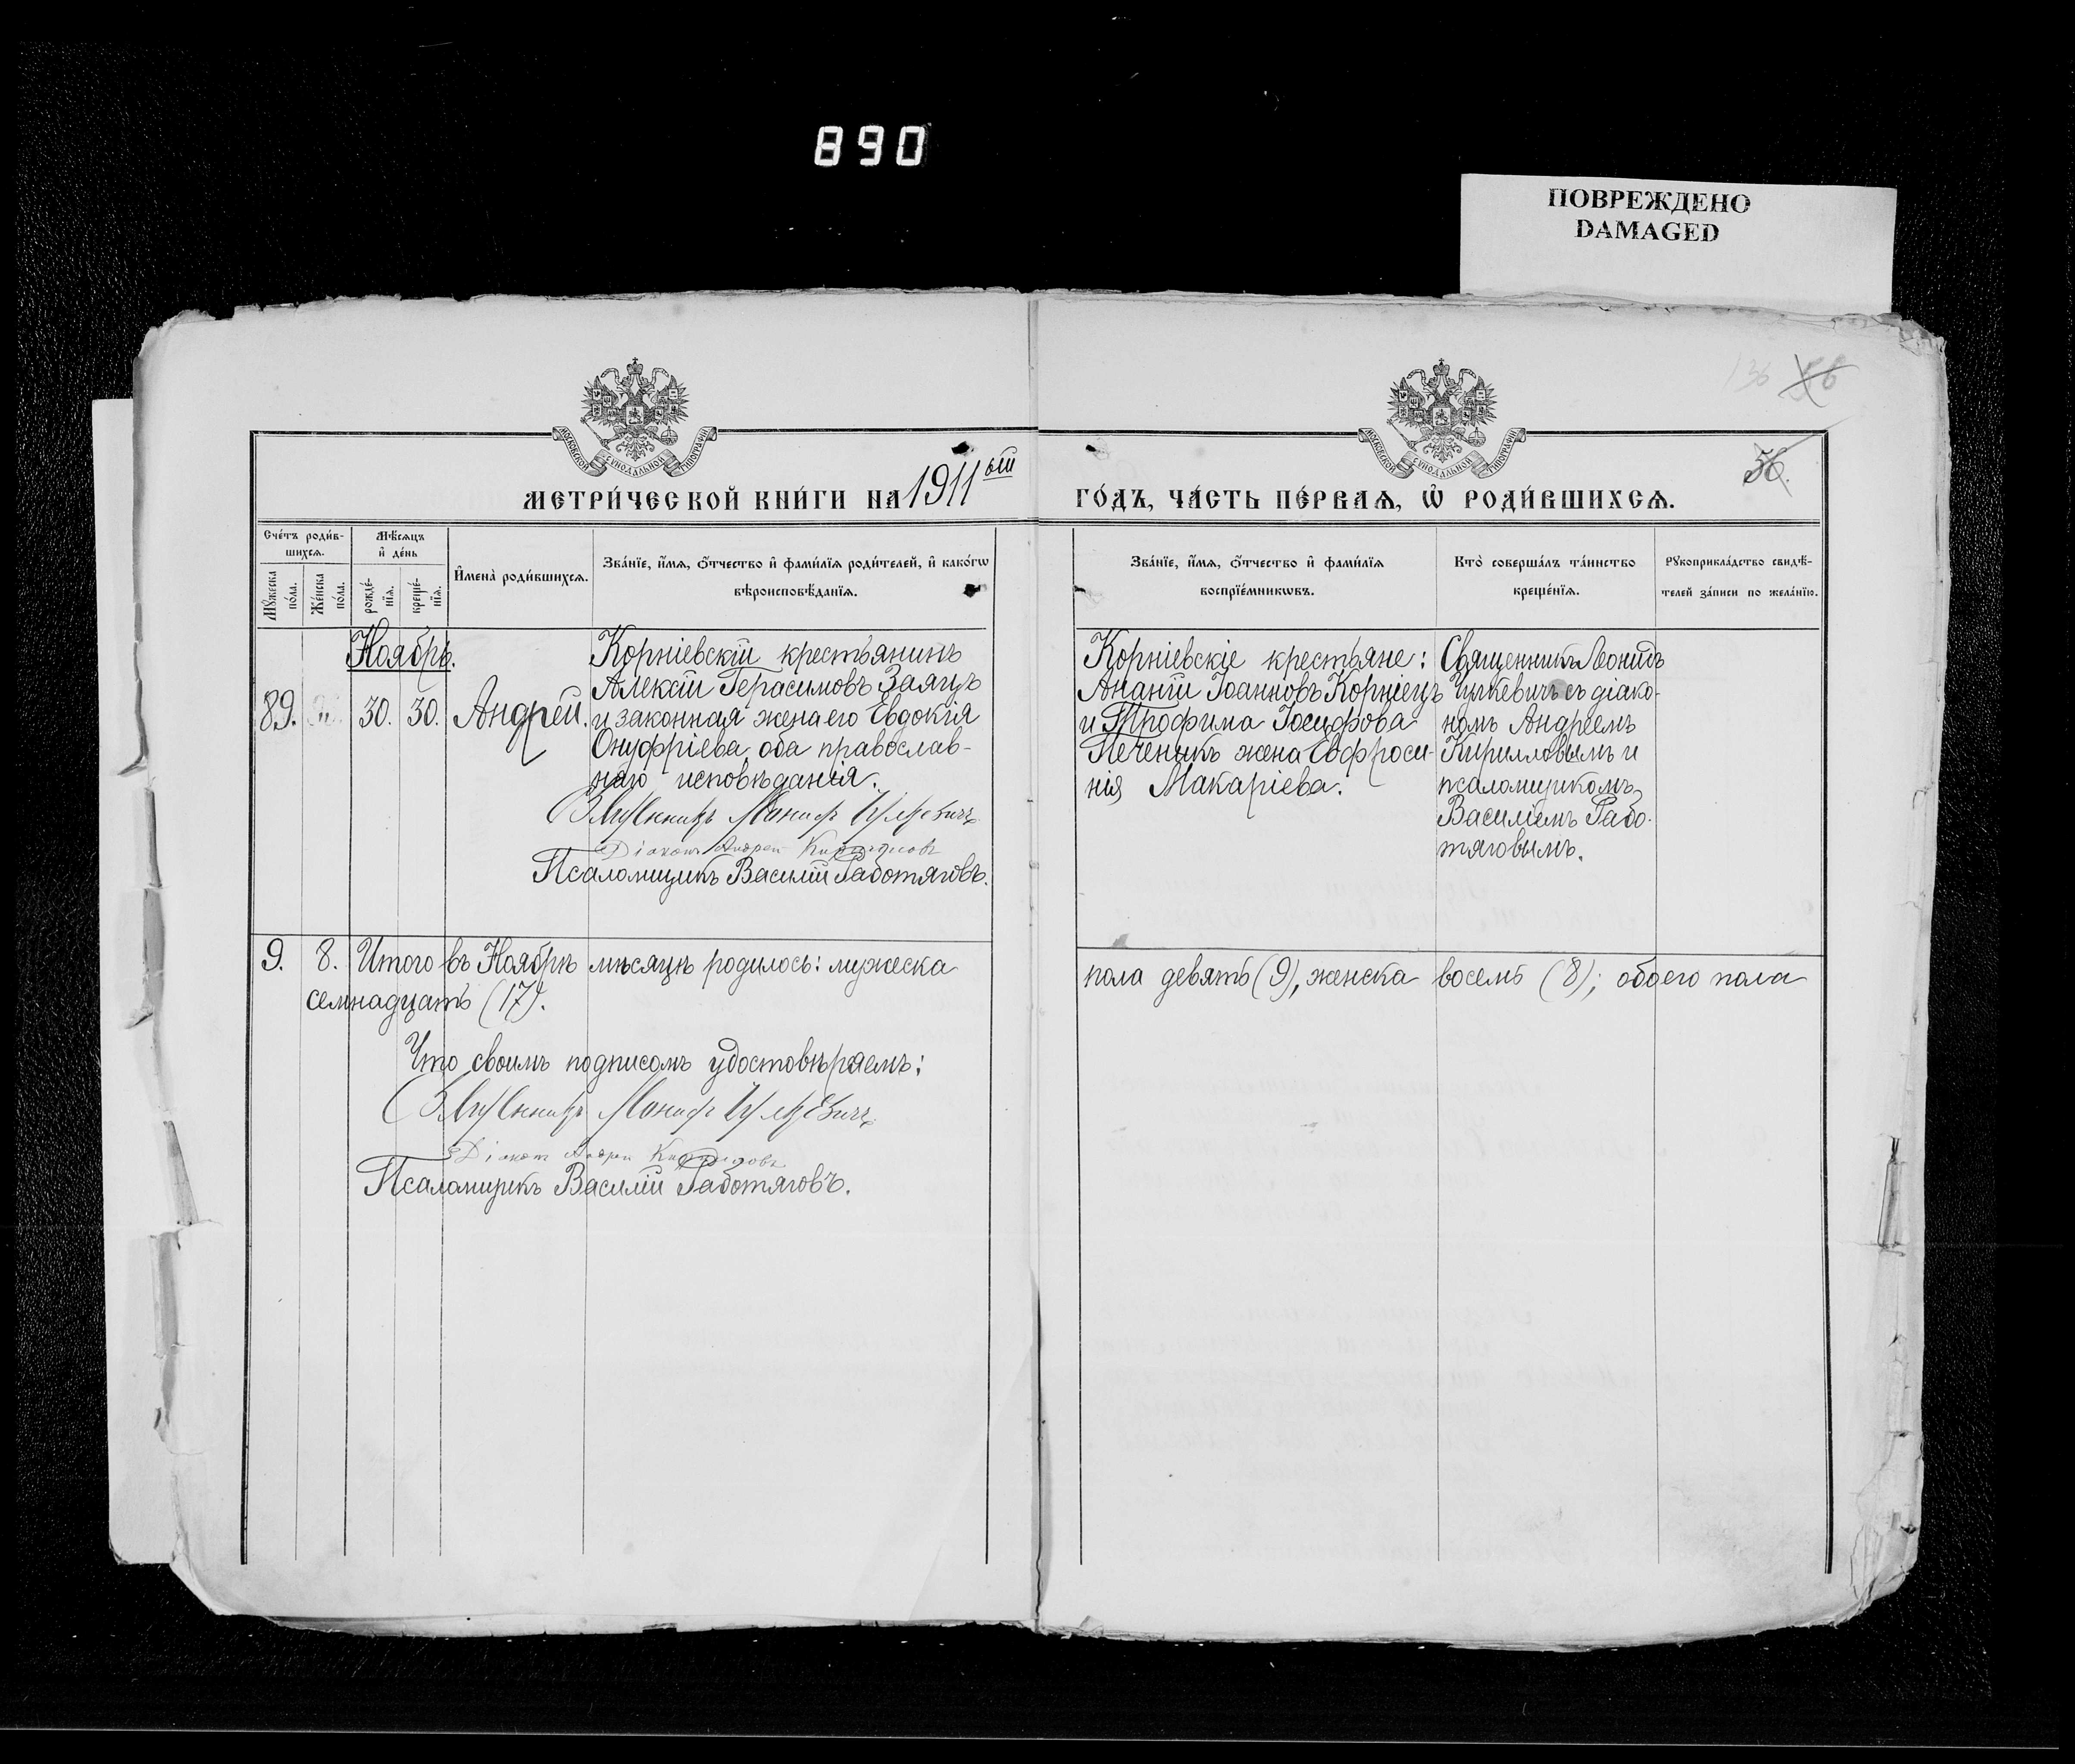 890
ПОВРЕЖДЕНО
DAMAGED
136 56
56.
МОСКОВСКОЙ СѴНОДАЛЬНОЙ ТИПОГРАФІИ
МОСКОВСКОЙ СѴНОДАЛЬНОЙ ТИПОГРАФІИ
МЕТРИ́ЧЕСКОЙ КНИ́ГИ НА 1911ый
ГО́ДЪ, ЧА́СТЬ ПЕ́РВАѦ, Ѡ҆ РОДИ́ВШИХСѦ.
Сче́тъ роди́в-
шихсѧ.
Мѣ́сѧцъ
и҆ де́нь
Мꙋ́жеска
по́ла.
Же́нска
по́ла.
рожде́-
нїѧ.
креще́-
нїѧ.
И҆мена̀ роди́вшихсѧ.
Зва́нїе, и҆́мѧ, ѻ҆́тчество и҆ фами́лїѧ роди́телей, и҆ како́гѡ
вѣроисповѣ́данїѧ.
Зва́нїе, и҆́мѧ, ѻ҆́тчество и҆ фами́лїѧ
воспрїе́мникѡвъ.
Кто̀ соверша́лъ та́инство
креще́нїѧ.
Рꙋкоприкла́дство свидѣ́-
телей за́писи по жела́нїю.
Ноябрь.
89.
30.
30.
Андрей.
Корніевскій крестьянинъ
Алексій Герасимовъ Заяцъ
и законная жена его Евдокія
Онуфріева, оба православ-
наго исповѣданія.
Священникъ Леонидъ Цулкевичъ
Діаконъ Андрей Кирилловъ
Псаломщикъ Василій Работяговъ.
Корніевскіе крестьяне:
Ананій Іоанновъ Корніецъ
и Трофима Іосифова
Печеникъ жена Евфроси-
нія Макаріева.
Священникъ Леонидъ
Цулкевичъ съ діако-
номъ Андреемъ
Кирилловымъ и
псаломщикомъ
Василіемъ Рабо-
тяговымъ.
9. 8. Итого въ Ноябрѣ мѣсяцѣ родилось: мужеска
пола девять (9), женска восемь (8); обоего пола
семнадцать (17).
Что своимъ подписомъ удостовѣряемъ:
Священникъ Леонидъ Цулкевичъ
Діаконъ Андрей Кирилловъ
Псаломщикъ Василій Работяговъ.